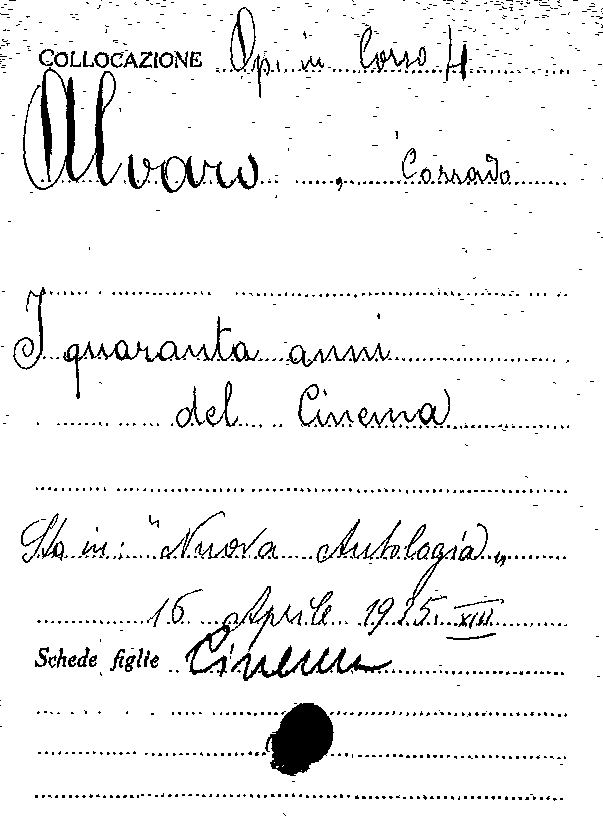 COLLOCAZIONE Op. in Corso 4
Alvaro, Corrado
I quaranta anni
del Cinema
Sta in: "Nuova Antologia"
16 Aprile 1935 XIII
Schede figlie Cinema